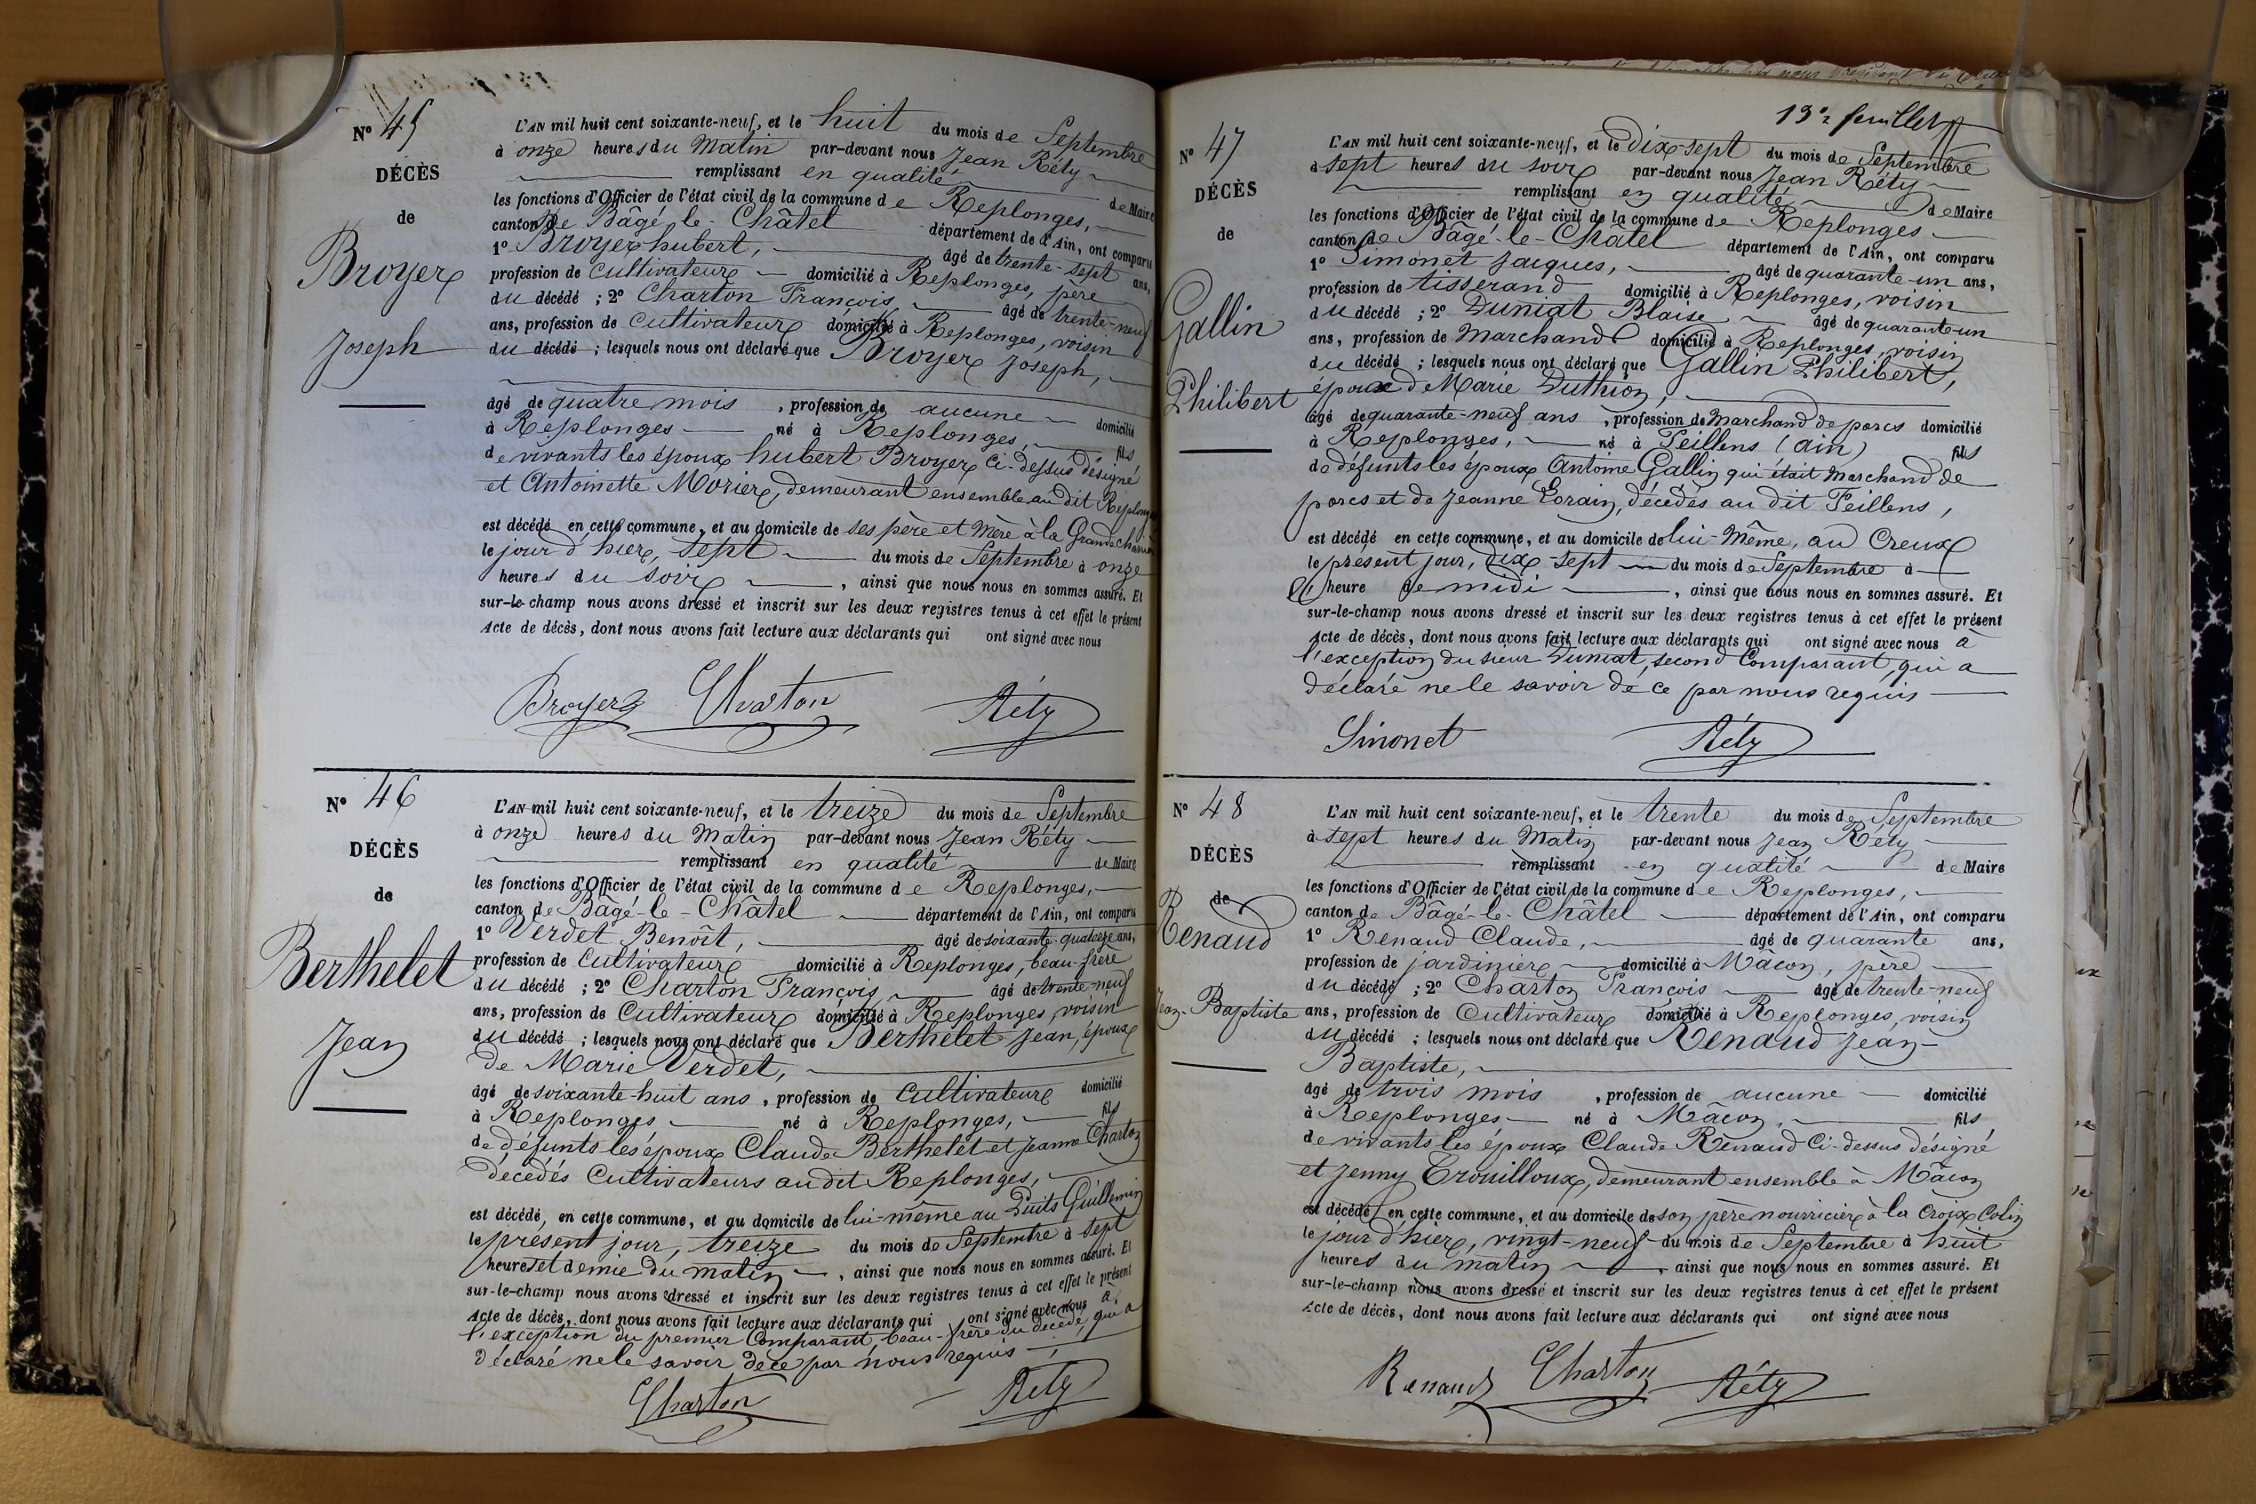 Nº 45
DÉCÈS
de
Broyer
Joseph
L'AN mil huit cent soixante-neuf, et le huit du mois de Septembre
à onze heures du Matin par-devant nous Jean Réty
remplissant en qualité de Maire
les fonctions d'Officier de l'état civil de la commune de Replonges,
canton de Bâgé-le-Châtel département de l'Ain, ont comparu
1º Broyer hubert, âgé de trente-sept ans,
profession de cultivateur domicilié à Replonges, père
du décédé ; 2º Charton François âgé de trente-neuf
ans, profession de cultivateur domicilié à Replonges, voisin
du décédé ; lesquels nous ont déclaré que Broyer Joseph,
âgé de quatre mois, profession de aucune domicilié
à Replonges né à Replonges, fils
de vivants les époux hubert Broyer ci-dessus désigné
et Antoinette Morier, demeurant ensemble au dit Replonges
est décédé en cette commune, et au domicile de ses père et mère à la Grande
le jour d'hier, sept du mois de Septembre à onze
heures du soir, ainsi que nous nous en sommes assuré. Et
sur-le-champ nous avons dressé et inscrit sur les deux registres tenus à cet effet le présent
Acte de décès, dont nous avons fait lecture aux déclarants qui ont signé avec nous
Broyer Charton Réty
Nº 46
DÉCÈS
de
Berthelet
Jean
L'AN mil huit cent soixante-neuf, et le treize du mois de Septembre
à onze heures du Matin par-devant nous Jean Réty
remplissant en qualité de Maire
les fonctions d'Officier de l'état civil de la commune de Replonges,
canton de Bâgé-le-Châtel département de l'Ain, ont comparu
1º Verdet Benoît, âgé de soixante-quatorze ans,
profession de cultivateur domicilié à Replonges, beau-frère
du décédé ; 2º Charton François âgé de trente-neuf
ans, profession de cultivateur domicilié à Replonges, voisin
du décédé ; lesquels nous ont déclaré que Berthelet Jean, époux
de Marie Verdet,
âgé de soixante-huit ans, profession de cultivateur domicilié
à Replonges né à Replonges, fils
de défunts les époux Claude Berthelet et Jeanne Charton
décédés cultivateurs au dit Replonges,
est décédé, en cette commune, et au domicile de lui-même au Puits Guillemin
le présent jour, treize du mois de Septembre à sept
heures et demie du matin, ainsi que nous nous en sommes assuré. Et
sur-le-champ nous avons dressé et inscrit sur les deux registres tenus à cet effet le présent
Acte de décès, dont nous avons fait lecture aux déclarants qui ont signé avec nous à
l'exception du premier Comparant, beau-frère du décédé, qui a
déclaré ne le savoir de ce par nous requis
Charton Réty
13e feuillet
Nº 47
DÉCÈS
de
Gallin
Philibert
L'AN mil huit cent soixante-neuf, et le dix-sept du mois de Septembre
à sept heures du soir par-devant nous Jean Réty
remplissant en qualité de Maire
les fonctions d'Officier de l'état civil de la commune de Replonges
canton de Bâgé-le-Châtel département de l'Ain, ont comparu
1º Simonet Jacques, âgé de quarante-un ans,
profession de tisserand domicilié à Replonges, voisin
du décédé ; 2º Duniat Blaise âgé de quarante-un
ans, profession de Marchand domicilié à Replonges, voisin
du décédé ; lesquels nous ont déclaré que Gallin Philibert,
époux de Marie Duthion,
âgé de quarante-neuf ans, profession de Marchand de porcs domicilié
à Replonges, né à Feillens (ain) fils
de défunts les époux Antoine Gallin qui était Marchand de
porcs et de Jeanne Lorain, décédés au dit Feillens,
est décédé en cette commune, et au domicile de lui-même, au Creux
le présent jour, dix-sept du mois de Septembre à
heure de midi, ainsi que nous nous en sommes assuré. Et
sur-le-champ nous avons dressé et inscrit sur les deux registres tenus à cet effet le présent
Acte de décès, dont nous avons fait lecture aux déclarants qui ont signé avec nous à
l'exception du sieur Duniat, second Comparant, qui a
déclaré ne le savoir de ce par nous requis
Simonet Réty
Nº 48
DÉCÈS
de
Renaud
Jean-Baptiste
L'AN mil huit cent soixante-neuf, et le trente du mois de Septembre
à sept heures du Matin par-devant nous Jean Réty
remplissant en qualité de Maire
les fonctions d'Officier de l'état civil de la commune de Replonges,
canton de Bâgé-le-Châtel département de l'Ain, ont comparu
1º Renaud Claude, âgé de quarante ans,
profession de jardinier domicilié à Mâcon, père
du décédé ; 2º Charton François âgé de trente-neuf
ans, profession de Cultivateur domicilié à Replonges, voisin
du décédé ; lesquels nous ont déclaré que Renaud Jean-
Baptiste,
âgé de trois mois, profession de aucune domicilié
à Replonges né à Mâcon, fils
de vivants les époux Claude Renaud ci-dessus désigné
et Jenny Trouilloux, demeurant ensemble à Mâcon
est décédé en cette commune, et au domicile de son père nourricier à la Croix Colin
le jour d'hier, vingt-neuf du mois de Septembre à huit
heures du matin, ainsi que nous nous en sommes assuré. Et
sur-le-champ nous avons dressé et inscrit sur les deux registres tenus à cet effet le présent
Acte de décès, dont nous avons fait lecture aux déclarants qui ont signé avec nous
Renaud Charton Réty